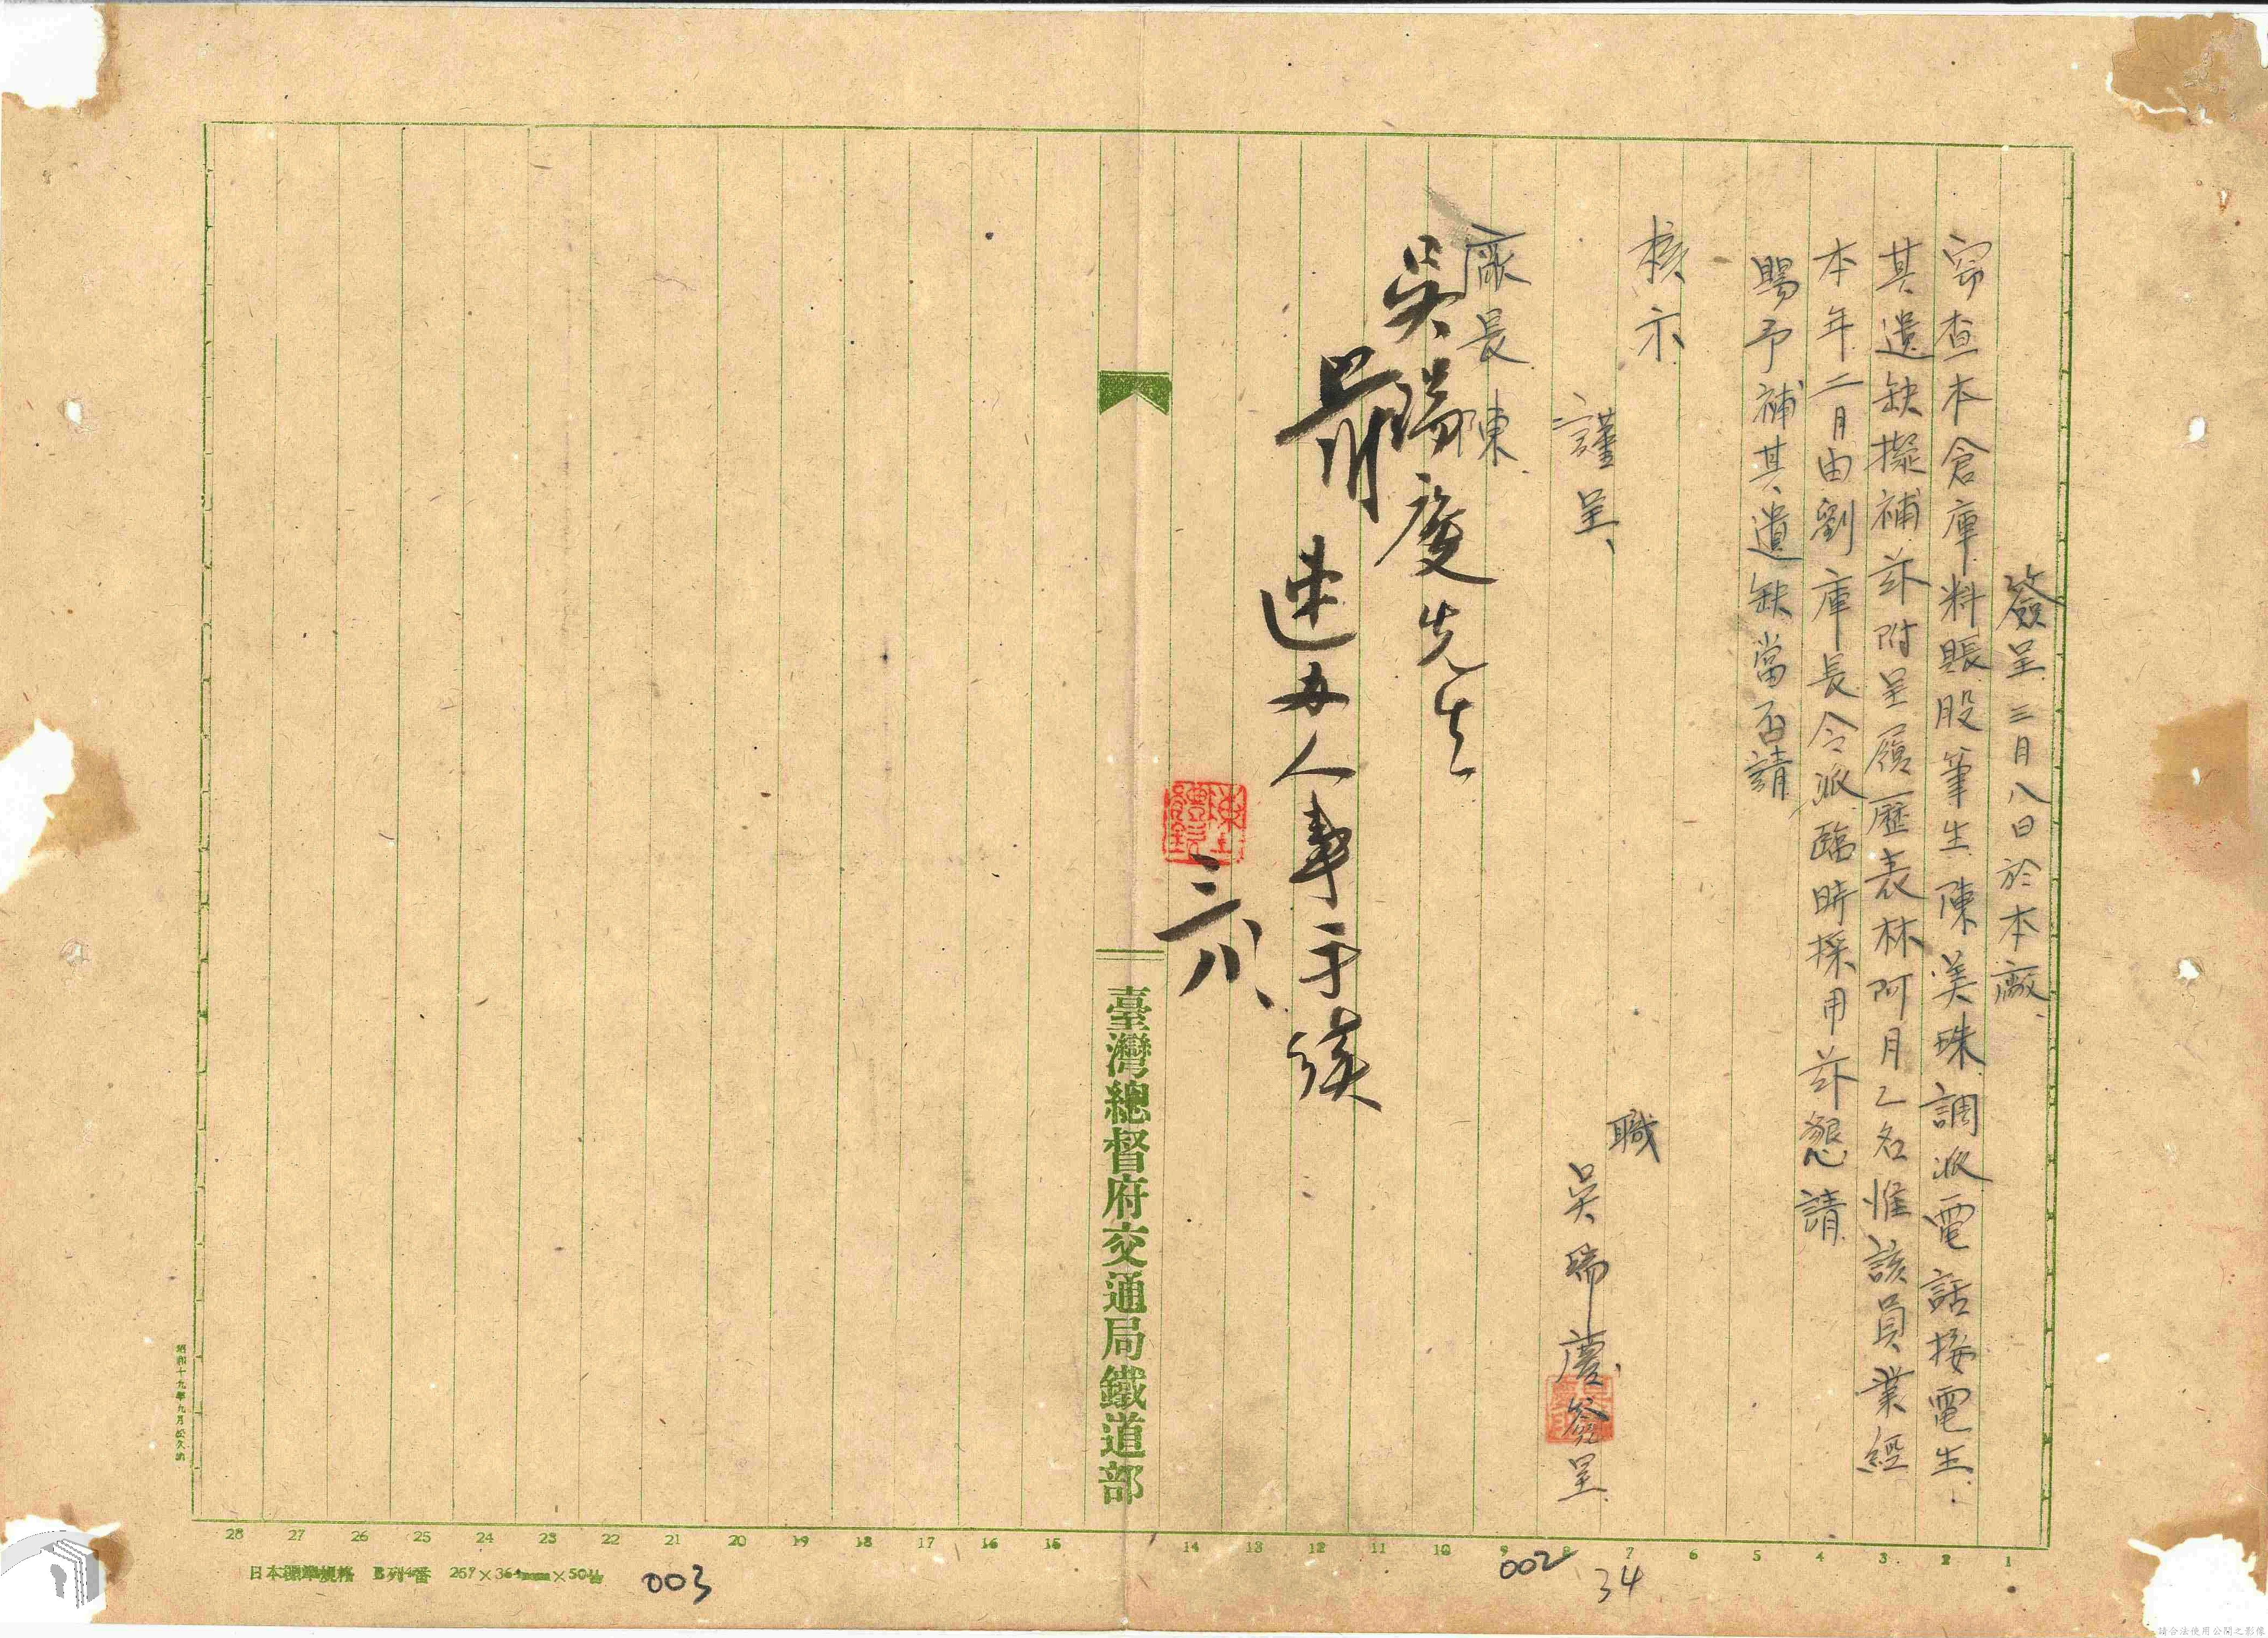 簽呈 三月八日於本廠
窃查本倉庫料賬股筆生陳美珠調派電話接電生
其遺缺擬補茲附呈履歷表林阿月乙名惟該員業經
本年二月由劉庫長令派臨時採用茲懇請
賜予補其遺缺當否請
核示
職
謹呈
吳瑞慶簽呈
廠長陳
吳瑞慶先生
速办人事手續
三八
臺灣總督府交通局鐵道部
昭和十九年九月
1 2 3 4 5 6 7 8 9 10 11 12 13 14 15 16 17 18 19 20 21 22 23 24 25 26 27 28
002
34
003
日本標準規格 B列4番 257×364mm×50
請合法使用公開之影像